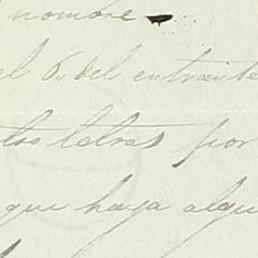 nombre
el 6 del entrante
letras por
que haya algu